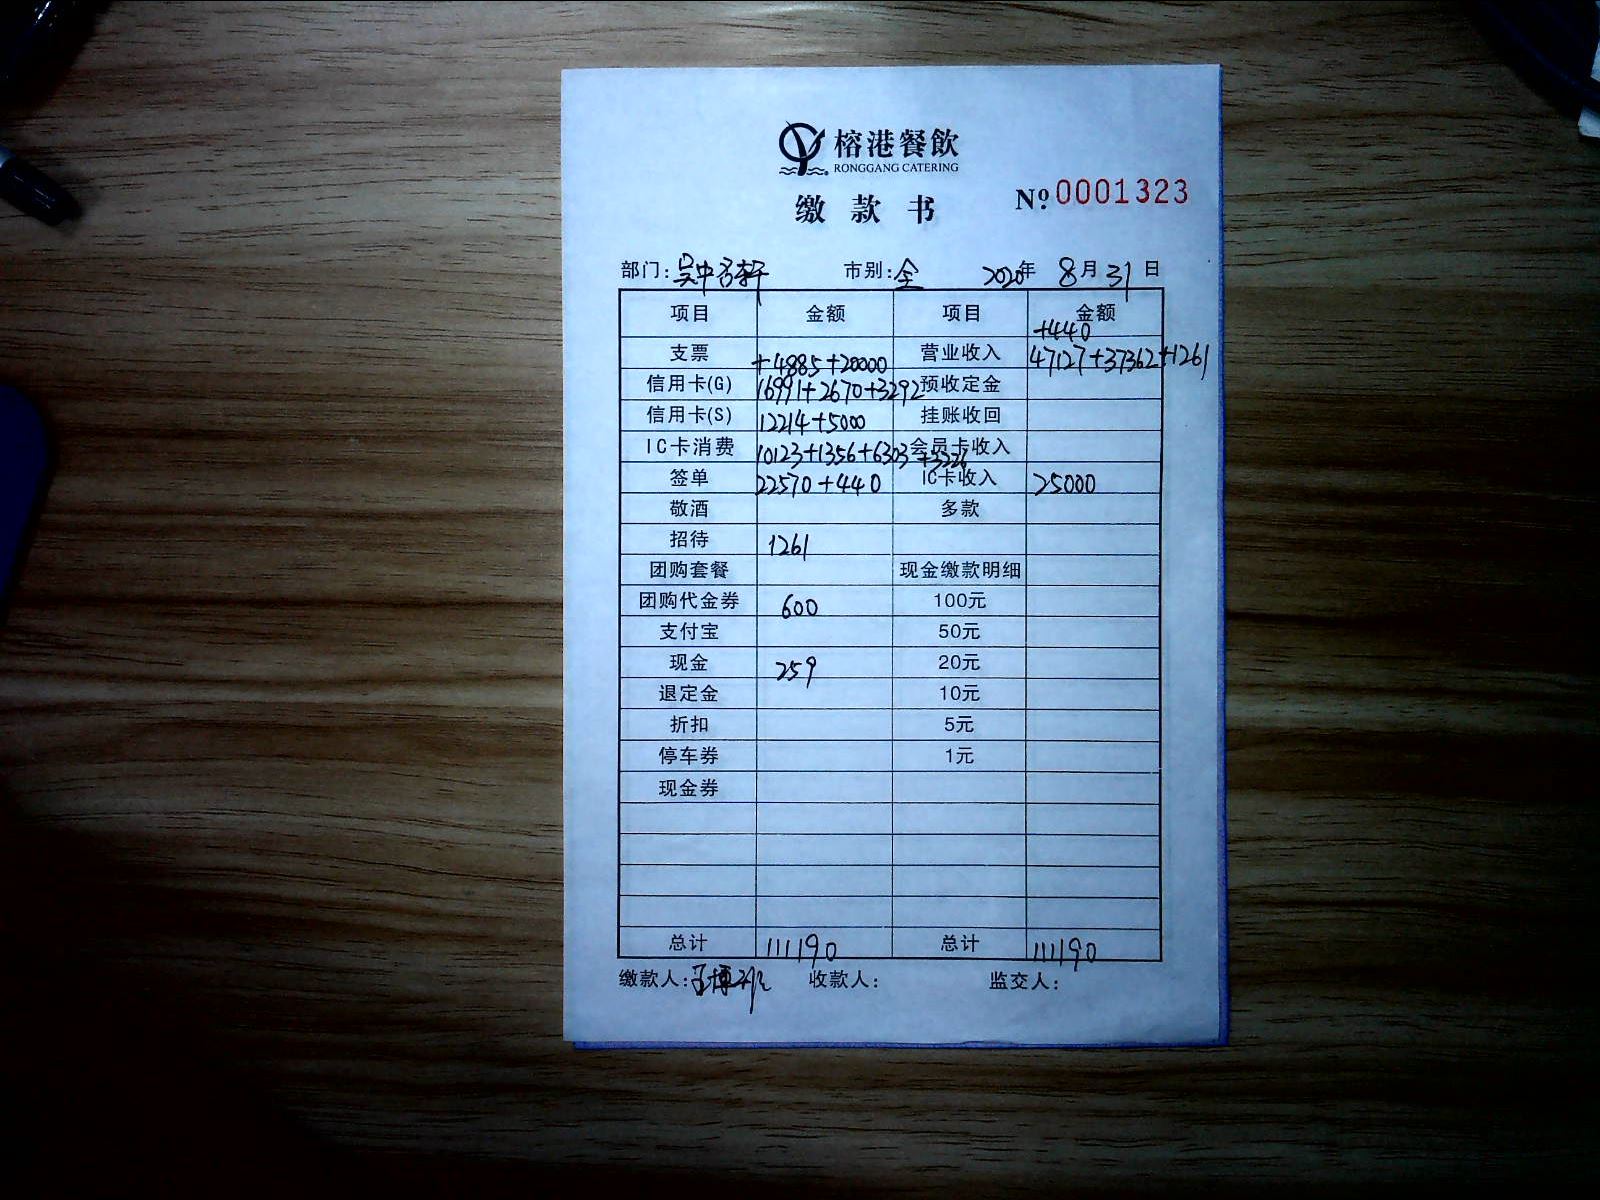 榕港餐飲
RONGGANG CATERING
缴款书
№ 0001323
部门: 吴中名轩 市别: 全 2020年 8月31日
项目 金额 项目 金额
+440
支票 +4885+20000 营业收入 47127+37362+1261
信用卡(G) 16991+2670+3292 预收定金
信用卡(S) 12214+5000 挂账收回
IC卡消费 10123+1356+6303+3226 会员卡收入
签单 22570+440 IC卡收入 25000
敬酒 多款
招待 1261
团购套餐 现金缴款明细
团购代金券 600 100元
支付宝 50元
现金 259 20元
退定金 10元
折扣 5元
停车券 1元
现金券
总计 111190 总计 111190
缴款人: 收款人: 监交人: